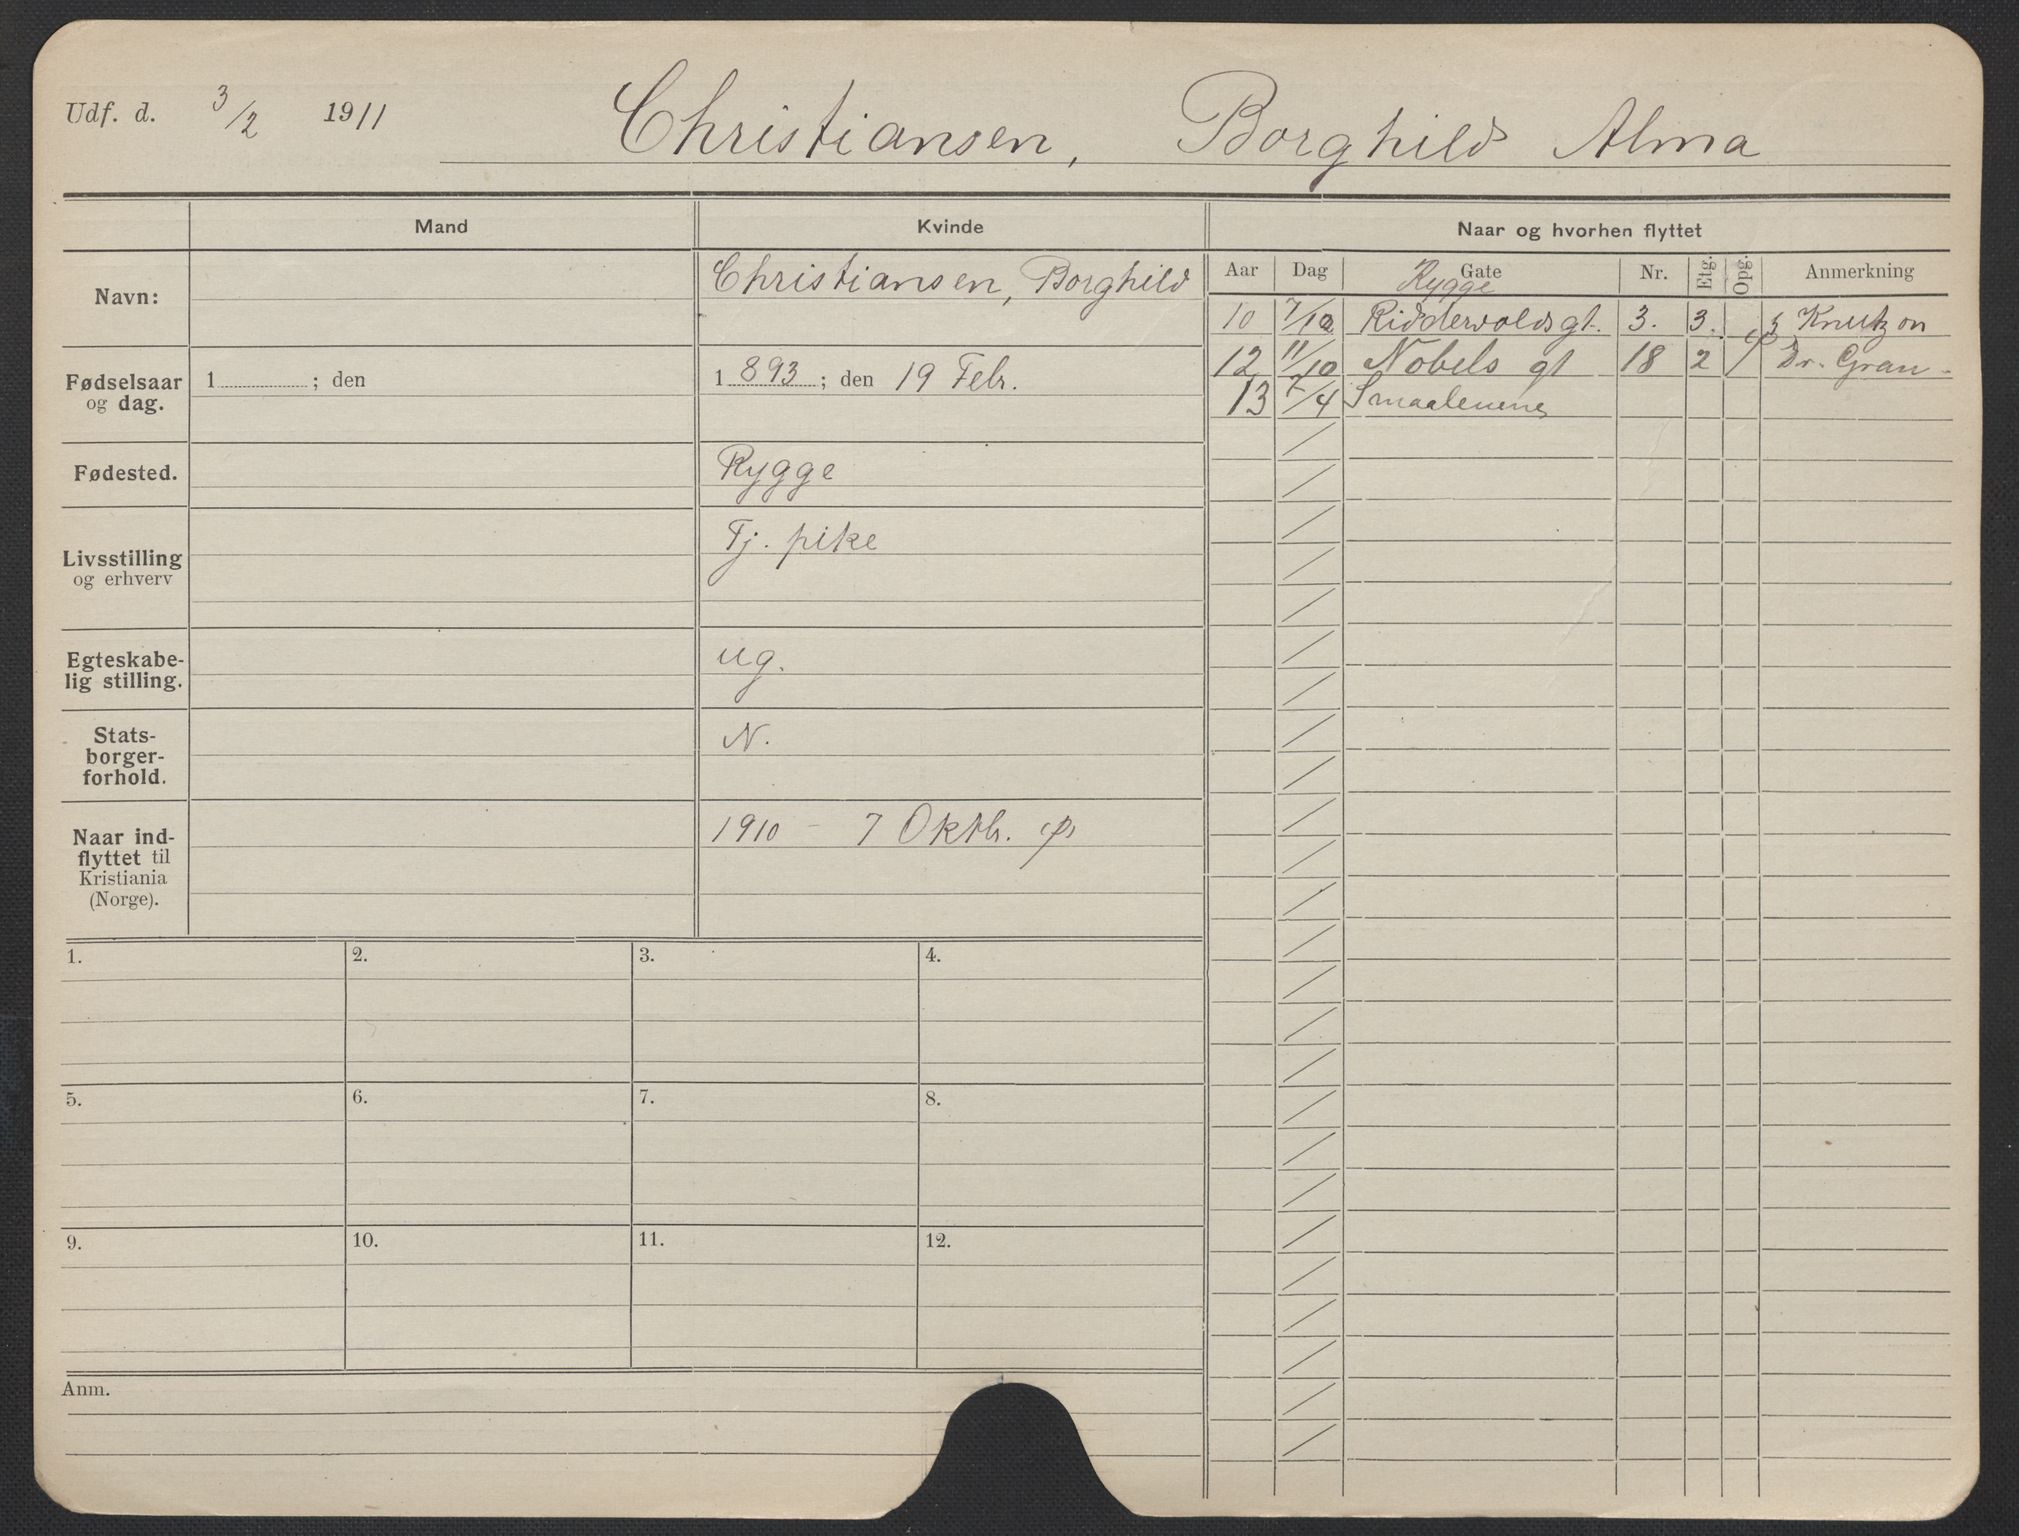 Udf. d. 3/2 1911 Christiansen, Borghild Alma
Mand Kvinde Naar og hvorhen flyttet
Navn: Christiansen, Borghild
Fødselsaar og dag. 1 ; den 1893; den 19 Febr.
Fødested. Rygge
Livsstilling og erhverv Tj. pike
Egteskabe-
lig stilling. ug.
Stats-
borger-
forhold. N.
Naar ind-
flyttet til
Kristiania
(Norge). 1910 - 7 Oktb.
Aar Dag Gate Nr. Etg. Opg. Anmerkning
Rygge
10 7/10 Riddervoldsgt. 3. 3. Knutzon
12 11/10 Nobels gt 18 2 Dr. Gran
13 7/4 Smaalenene
1. 2. 3. 4.
5. 6. 7. 8.
9. 10. 11. 12.
Anm.